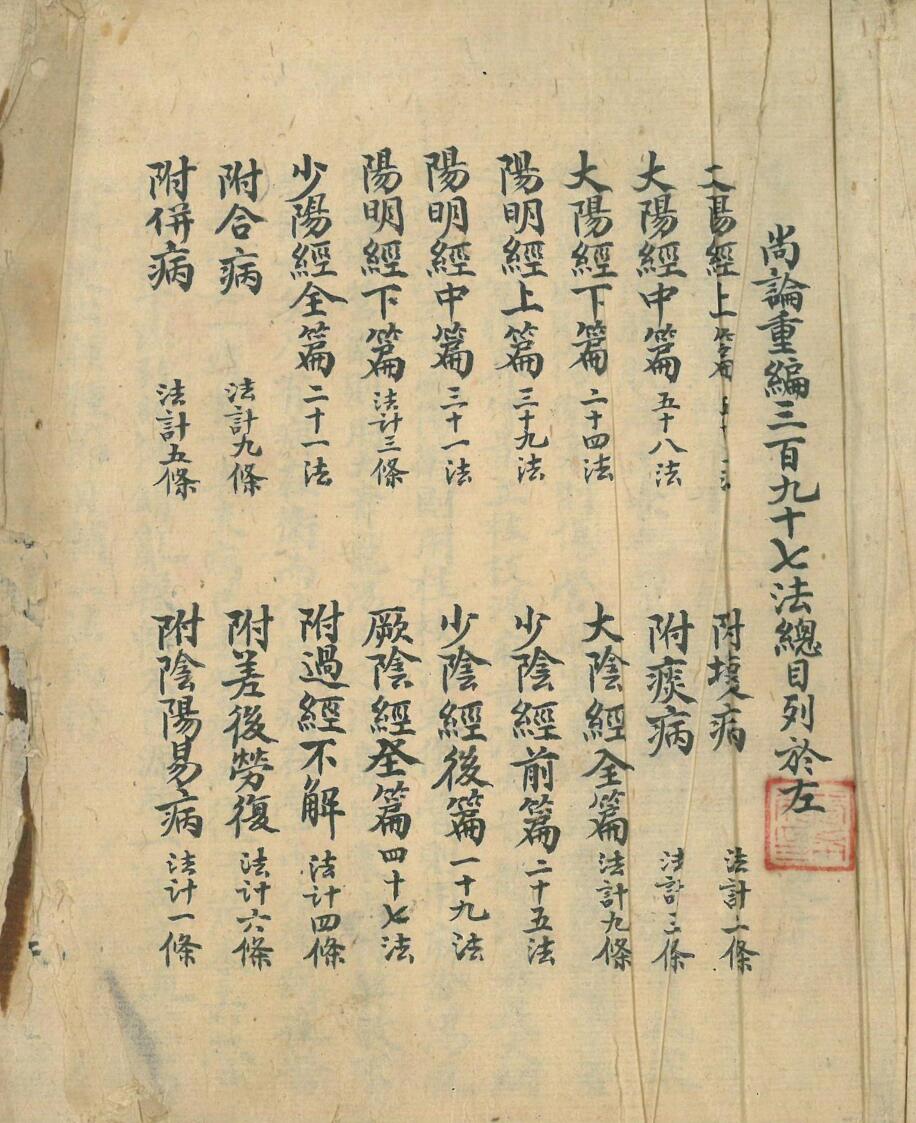 尚論重編三百九十七法總目列於左
陽經上篇
大陽經中篇 五十八法
大陽經下篇 二十四法
陽明經上篇 三十九法
陽明經中篇 三十一法
陽明經下篇 法計三條
少陽經全篇 二十一法
附合病 法計九條
附併病 法計五條
附壞病 法計二條
附痰病 法計三條
大陰經全篇 法計九條
少陰經前篇 二十五法
少陰經後篇 一十九法
厥陰經全篇 四十七法
附過經不解 法計四條
附差後勞復 法計六條
附陰陽易病 法計一條